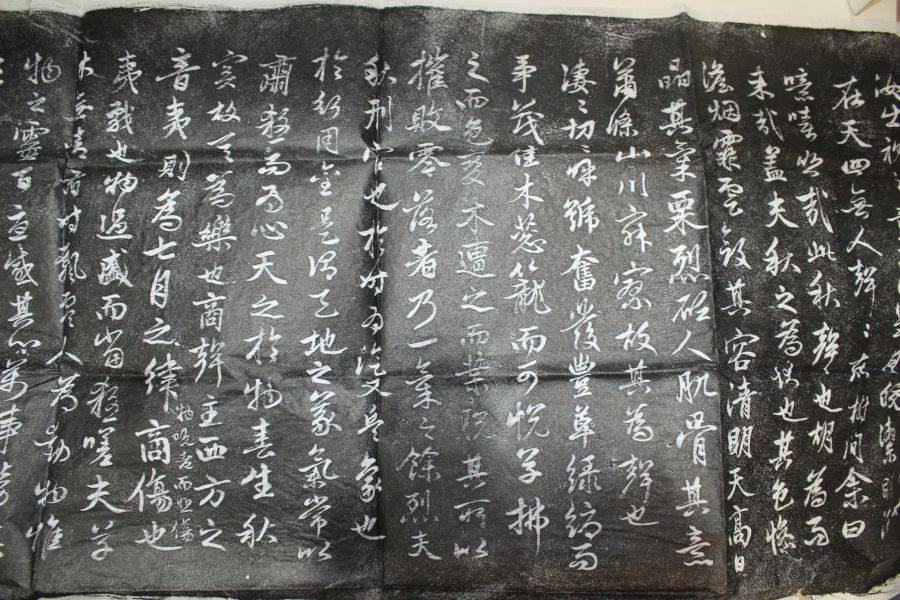 在天四無人聲〻在樹間余曰
噫嘻悲哉此秋聲也胡為而
來哉蓋夫秋之為狀也其色慘
澹烟霏雲斂其容清明天高日
晶其氣栗烈砭人肌骨其意
蕭條山川寂寥故其為聲也
淒〻切〻呼號奮發豐草綠縟而
爭茂佳木葱籠而可悅草拂
之而色變木遭之而葉脫其所以
摧敗零落者乃一氣之餘烈夫
秋刑官也於時為陰又兵象也
於行用金是謂天地之義氣常以
肅殺而為心天之於物春生秋
實故其為樂也商聲主西方之
音夷則為七月之律商傷也
物既老而悲傷
夷戮也物過盛而當殺嗟夫草
木無情有時飄零人為動物惟
物之靈百憂感其心萬事勞